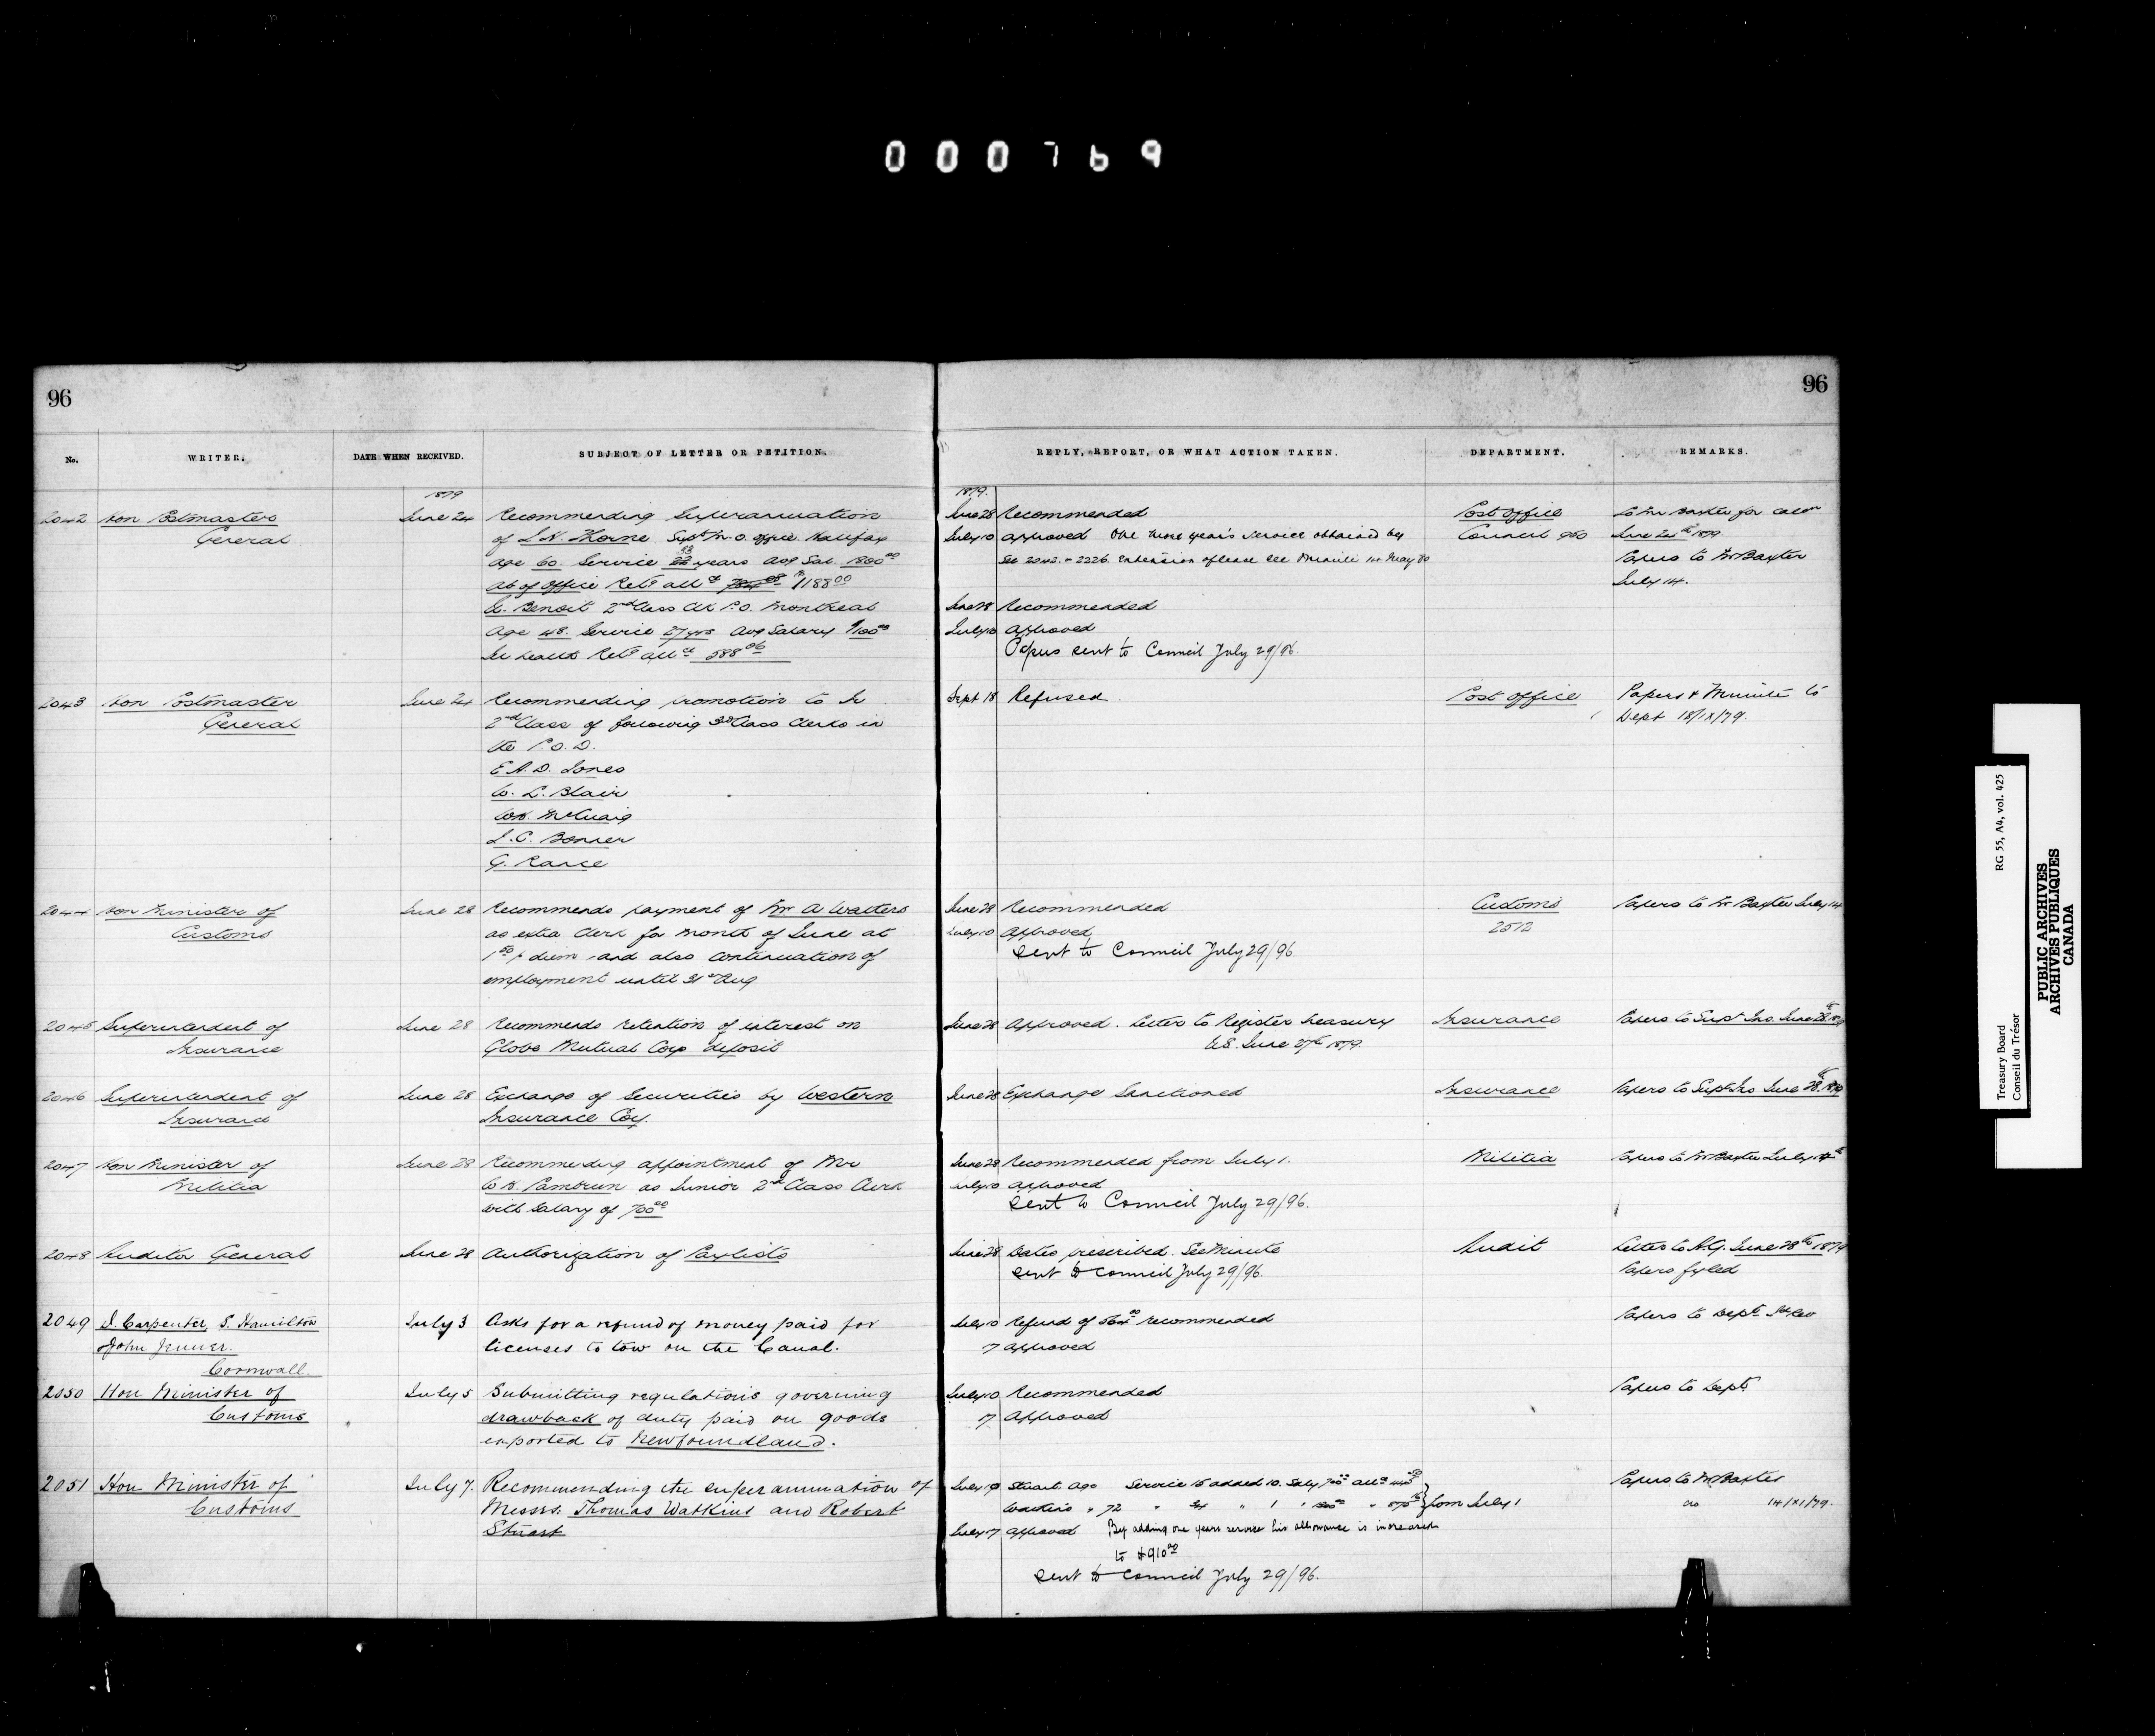 000769
96
96
No. WRITER. DATE WHEN RECEIVED. SUBJECT OF LETTER OR PETITION. REPLY, REPORT, OR WHAT ACTION TAKEN. DEPARTMENT. REMARKS.
1879 1879.
2042 Hon Postmaster June 24 Recommending Superannuation June 28 Recommended Post Office To Mr Baxter for
General of Thorne Supt M.O. Office Halifax July 10 approved One more year's service obtained Council June 1879.
age 60. Service years Avg Sal. 1800 00 See 2042 - 2226. Extension of leave See Minute 14 May 80 Papers to Mr Baxter
ab of Office Retg allce $1188 00 July 14.
Benoit 2nd Class Clk P.O. Montreal June 28 Recommended
age 48. Service 27 yrs Avg Salary July 10 approved
Ill health Retg allce 588 06 sent to Council July 29/96.
2043 Hon Postmaster June 24 Recommending promotion to Sr Sept 18 Refused. Post Office Papers & Minute to
General 2nd Class of following 3rd Class Clerks in Dept 18/IX/79.
the P.O.D.
E.A.D. Jones
W. L. Blair
Wm. McCuaig
J.C. Bonner
G. Rance
2044 Hon Minister of June 28 Recommends payment of Mr A Watters June 28 Recommended Customs Papers to Mr Baxter July 14
Customs as extra Clerk for month of June at July 10 Approved 2512
1 50 p diem and also continuation of sent to Council July 29/96
employment until 31st Aug
2045 Superintendent of June 28 Recommends retention of interest on June 28 Approved. Letter to Register Treasury Insurance Papers to Supt Ins. June 28th 1879
Insurance Globe Mutual Coys deposit June 27th 1879.
2046 Superintendent of June 28 Exchange of Securities by Western June 28 Exchange Sanctioned Insurance Papers to Supt Ins June 28th 1879
Insurance Insurance Coy.
2047 Hon Minister of June 28 Recommending appointment of Mr June 28 Recommended from July 1. Militia Papers to Mr Baxter July 14th
Militia Pambrun as Junior 2nd Class Clerk July 10 approved
with salary of 700 00 sent to Council July 29/96.
2048 Auditor General June 28 Authorization of Paylists June 28 Dates prescribed. See Minute Audit Letter to A.G. June 28th 1879
sent to Council July 29/96. Papers fyled
2049 D. Carpenter, S. Hamilton July 3 Asks for a refund of money paid for July 10 Refund of recommended Papers to Dept
John Jenner. licenses to tow on the Canal. 7 approved
Cornwall.
2050 Hon Minister of July 5 Submitting regulations governing July 10 Recommended Papers to Dept
Customs drawback of duty paid on goods 7 Approved
exported to Newfoundland.
2051 Hon Minister of July 7. Recommending the superannuation of July 10 Stuart. Age Service 15 added 10. Saly 700 00 Papers to Mr Baxter
Customs Messrs. Thomas Watkins and Robert Watkins " 72 " " 1 " } from July 1 do 14/XI/79.
Stuart July 17 approved By adding one years service his allowance is increased
to $910 00
sent to Council July 29/96.
Treasury Board RG 55, A4, vol. 425
Conseil du Trésor
PUBLIC ARCHIVES
ARCHIVES PUBLIQUES
CANADA